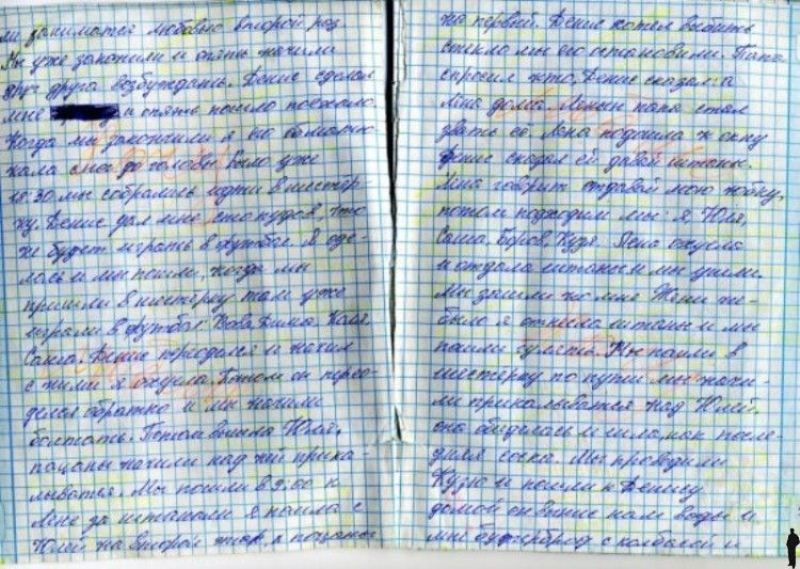 ли заниматся любовью второй раз
Мы уже закончили и опять начили
друг друга возбуждать. Денис сделал
мне и опять пошло поехало.
Когда мы закончили я его
до головы было уже
18:30 мы собрались идти в шестёр-
ку. Денис дал мне сто пудов, что
не будет играть в футбол. Я оде-
лась и мы пошли, когда мы
пришли в шестёрку там уже
играли в футбол: Вова, Дима, Коля,
Саша. Денис и начил
с ними я охуела. Потом он перео-
делся обратно и мы начили
болтать. Потом вышла Юля,
пацаны начили над ней прика-
лыватся. Мы пошли в 9:00 к
Лене за штанами я пошла с
Юлей на второй этаж, а пацаны
на первый. Денис хотел выбить
стекло мы его остановили. Папа
спросил кто, Денис сказал: а
Лена дома. Ленин папа стал
звать её. Лена подошла к окну
Денис сказал ей давай штаны.
Лена говорит отдавай мою юбку,
потом подходим мы: я, Юля,
Саша, Боров, Кузя. Лена охуела
и отдала штаны и мы ушли.
Мы зашли ко мне Жени не-
было я штаны и мы
пошли гулять. Мы пошли в
шестёрку по пути мы начи-
ли прикалыватся над Юлей,
она обиделась и шла, как после-
дняя сочка. Мы проводили
Кузю и пошли к Денису
домой он вынис нам воды и
мне бутерброд с колбасой и